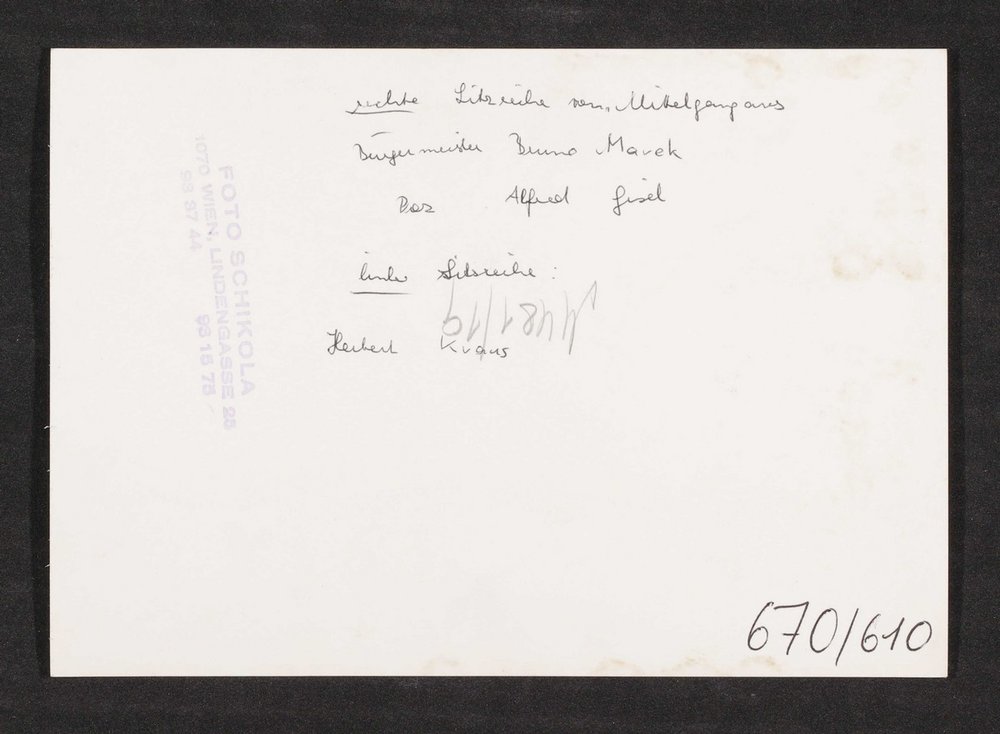 rechte Sitzreihe vom Mittelgang aus
Bürgermeister Bruno Marek
Doz Alfred Gisel
linke Sitzreihe :
Herbert Kraus
670/610
FOTO SCHIKOLA
1070 WIEN, LINDENGASSE 25
93 37 44 93 15 75